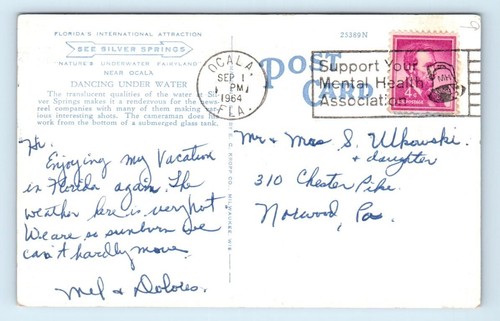 FLORIDA'S INTERNATIONAL ATTRACTION
SEE SILVER SPRINGS
"NATURE'S UNDERWATER FAIRYLAND"
NEAR OCALA
DANCING UNDER WATER
The translucent qualities of the water at Sil-
ver Springs makes it a rendezvous for the news-
reel companies with many
ous interesting stunts. The cameraman does his
work from the bottom of a submerged glass tank.
25389N
POST
CARD
OCALA,
SEP 1
PM
1964
FLA.
Support Your
Mental Health
Association
Hi.
Enjoying my Vacation
in Florida again. The
weather here is very hot
We are so sunburn we
can't hardly move.
Mel & Dolores.
Mr & Mrs S. Ulkowski
& daughter
310 Chester Pike
Norwood, Pa.
MILWAUKEE, WIS.